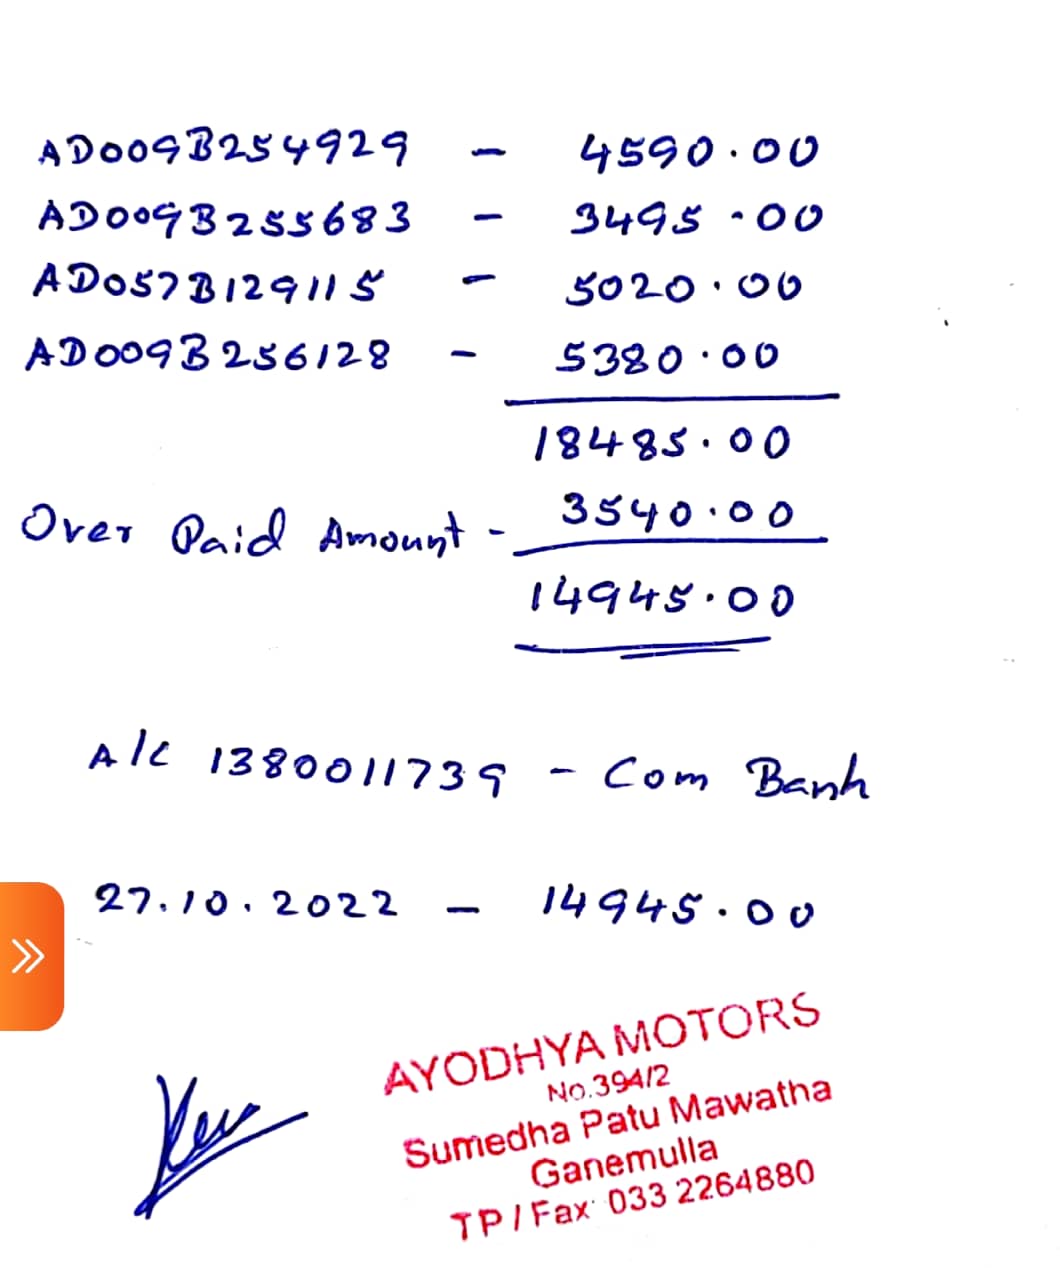 AD009B254929 - 4590.00
AD009B255683 - 3495.00
AD057B129115 - 5020.00
AD009B256128 - 5380.00
18485.00
Over Paid Amount - 3540.00
14945.00
A/C 1380011739 - Com Bank
27.10.2022 - 14945.00
AYODHYA MOTORS
No.394/2
Sumedha Patu Mawatha
Ganemulla
TP / Fax: 033 2264880